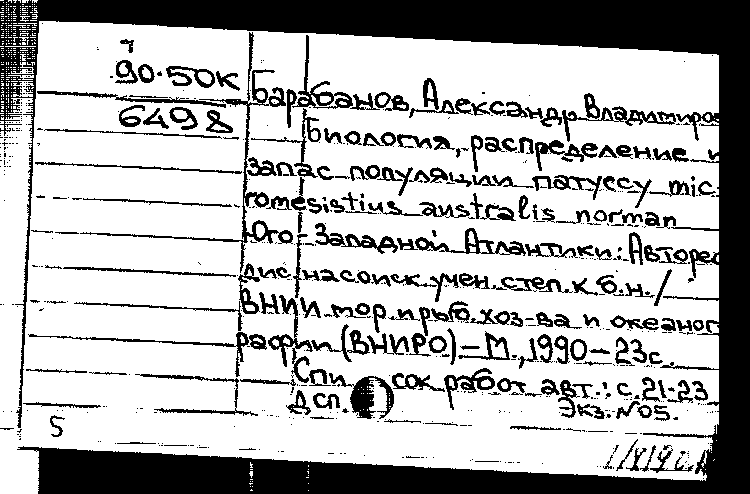 90-50К
6498
Барабанов, Александр Владимиров
Биология, распределение и
запас популяции патуссу mic
romesistius australis norman
Юго-Западной Атлантики: Авторес
дис. на соиск. учен. степ. к.б.н. /
ВНИИ мор. и рыб. хоз-ва и океаног
рафии (ВНИРО) – М., 1990 – 23с.
Спи сок работ авт.: с. 21-23
Дсп. Экз. №05.
5